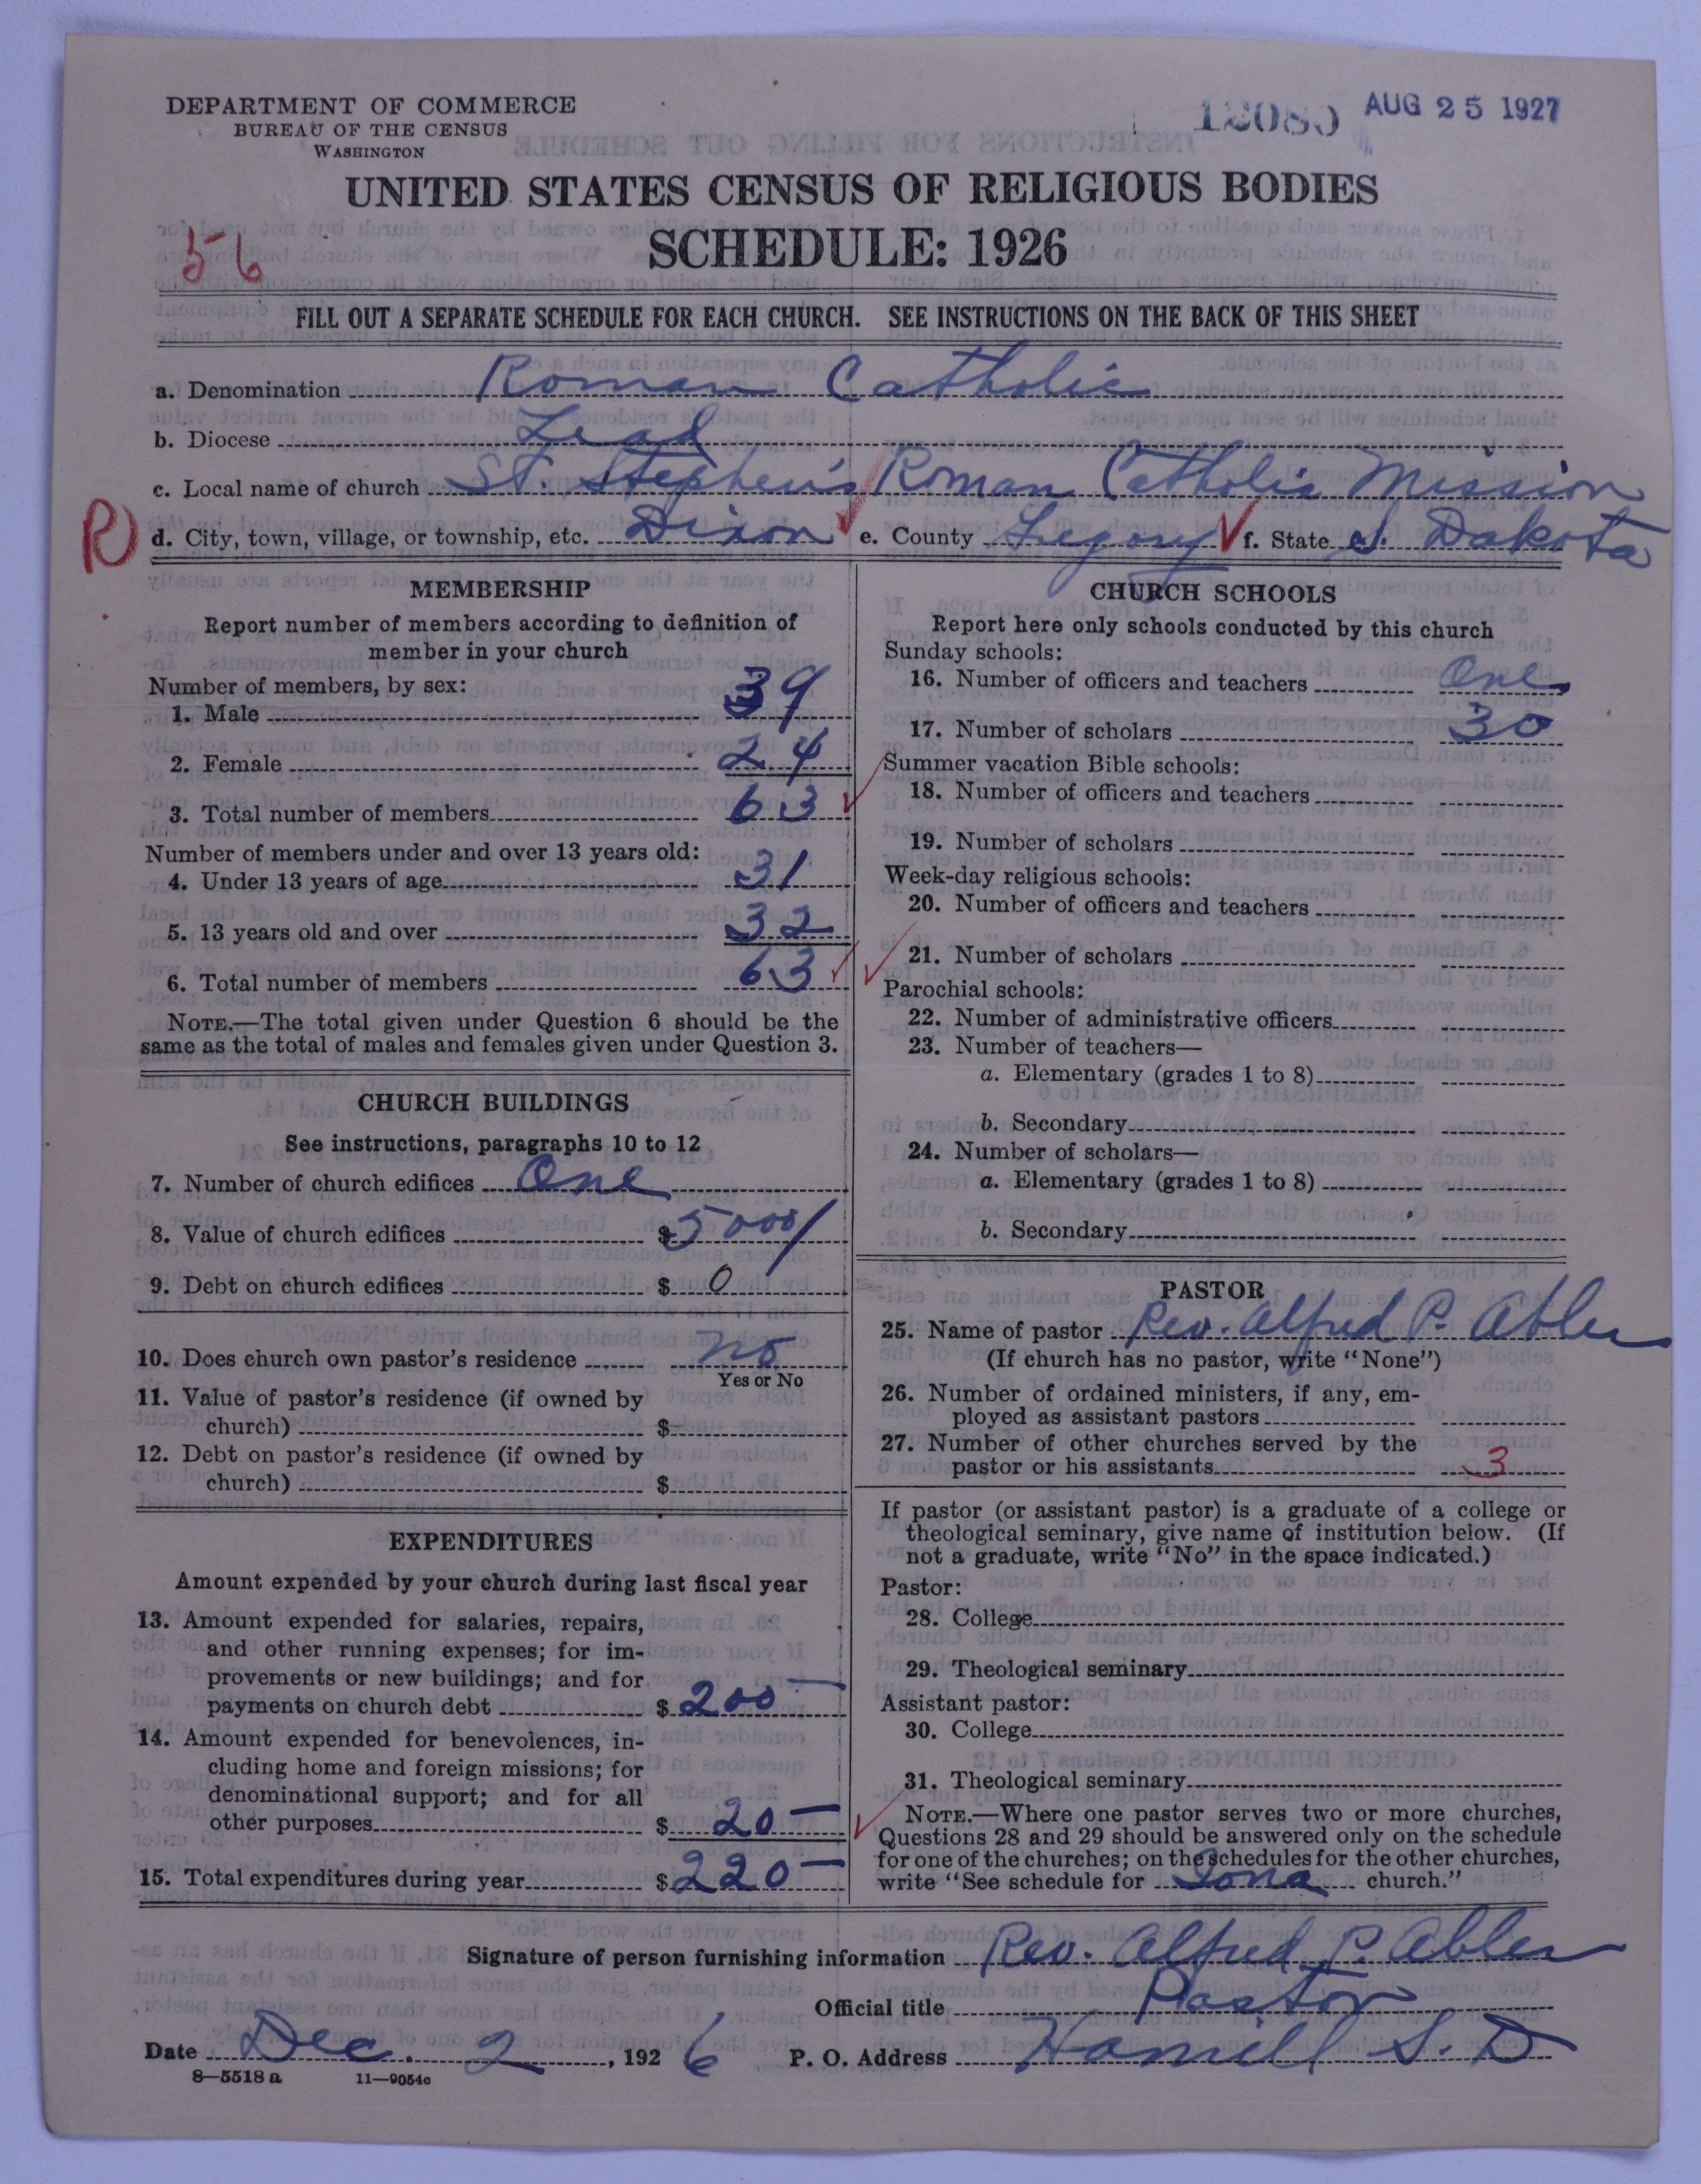 DEPARTMENT OF COMMERCE
BUREAU OF THE CENSUS
WASHINGTON
AUG 25 1927
UNITED STATES CENSUS OF RELIGIOUS BODIES
SCHEDULE: 1926
56
FILL OUT A SEPARATE SCHEDULE FOR EACH CHURCH. SEE INSTRUCTIONS ON THE BACK OF THIS SHEET
a. Denomination Roman Catholic
b. Diocese Lead
c. Local name of church St. Stephen's Roman Catholic Mission
R)
d. City, town, village, or township, etc. Dixon e. County Gregory f. State S. Dakota
MEMBERSHIP
Report number of members according to definition of
member in your church
Number of members, by sex:
1. Male 39
2. Female 24
3. Total number of members 63
Number of members under and over 13 years old:
4. Under 13 years of age 31
5. 13 years old and over 32
6. Total number of members 63
NOTE.—The total given under Question 6 should be the
same as the total of males and females given under Question 3.
CHURCH BUILDINGS
See instructions, paragraphs 10 to 12
7. Number of church edifices One
8. Value of church edifices $5000/
9. Debt on church edifices $ 0
10. Does church own pastor's residence no
Yes or No
11. Value of pastor's residence (if owned by
church) $
12. Debt on pastor's residence (if owned by
church) $
EXPENDITURES
Amount expended by your church during last fiscal year
13. Amount expended for salaries, repairs,
and other running expenses; for im-
provements or new buildings; and for
payments on church debt $ 200—
14. Amount expended for benevolences, in-
cluding home and foreign missions; for
denominational support; and for all
other purposes $ 20—
15. Total expenditures during year $ 220—
CHURCH SCHOOLS
Report here only schools conducted by this church
Sunday schools:
16. Number of officers and teachers One
17. Number of scholars 30
Summer vacation Bible schools:
18. Number of officers and teachers
19. Number of scholars
Week-day religious schools:
20. Number of officers and teachers
21. Number of scholars
Parochial schools:
22. Number of administrative officers
23. Number of teachers—
a. Elementary (grades 1 to 8)
b. Secondary
24. Number of scholars—
a. Elementary (grades 1 to 8)
b. Secondary
PASTOR
25. Name of pastor Rev. Alfred P. Abler
(If church has no pastor, write "None")
26. Number of ordained ministers, if any, em-
ployed as assistant pastors
27. Number of other churches served by the
pastor or his assistants 3
If pastor (or assistant pastor) is a graduate of a college or
theological seminary, give name of institution below. (If
not a graduate, write "No" in the space indicated.)
Pastor:
28. College
29. Theological seminary
Assistant pastor:
30. College
31. Theological seminary
NOTE.—Where one pastor serves two or more churches,
Questions 28 and 29 should be answered only on the schedule
for one of the churches; on the schedules for the other churches,
write "See schedule for Iona church."
Signature of person furnishing information Rev. Alfred P. Abler
Official title Pastor
Date Dec. 2, 1926 P. O. Address Hamill S. D
8—5518 a 11—9054c